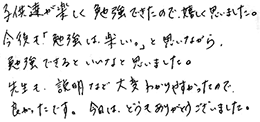 子供達が楽しく勉強できたので、嬉しく思いました。
今後も「勉強は、楽しい。」と思いながら、
勉強できるといいなと思いました。
先生も、説明など大変わかりやすかったので、
良かったです。今日は、どうもありがとうございました。